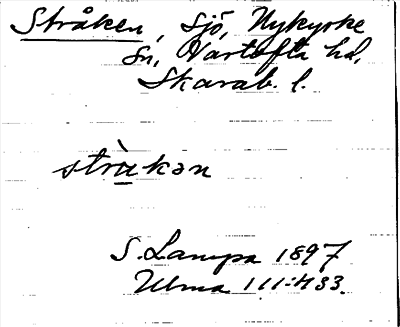 Stråken, sjö, Nykyrke
sn, Vartofta hd,
Skarab. l.
stràkən
S. Lampa 1897
Ulma 111:433.